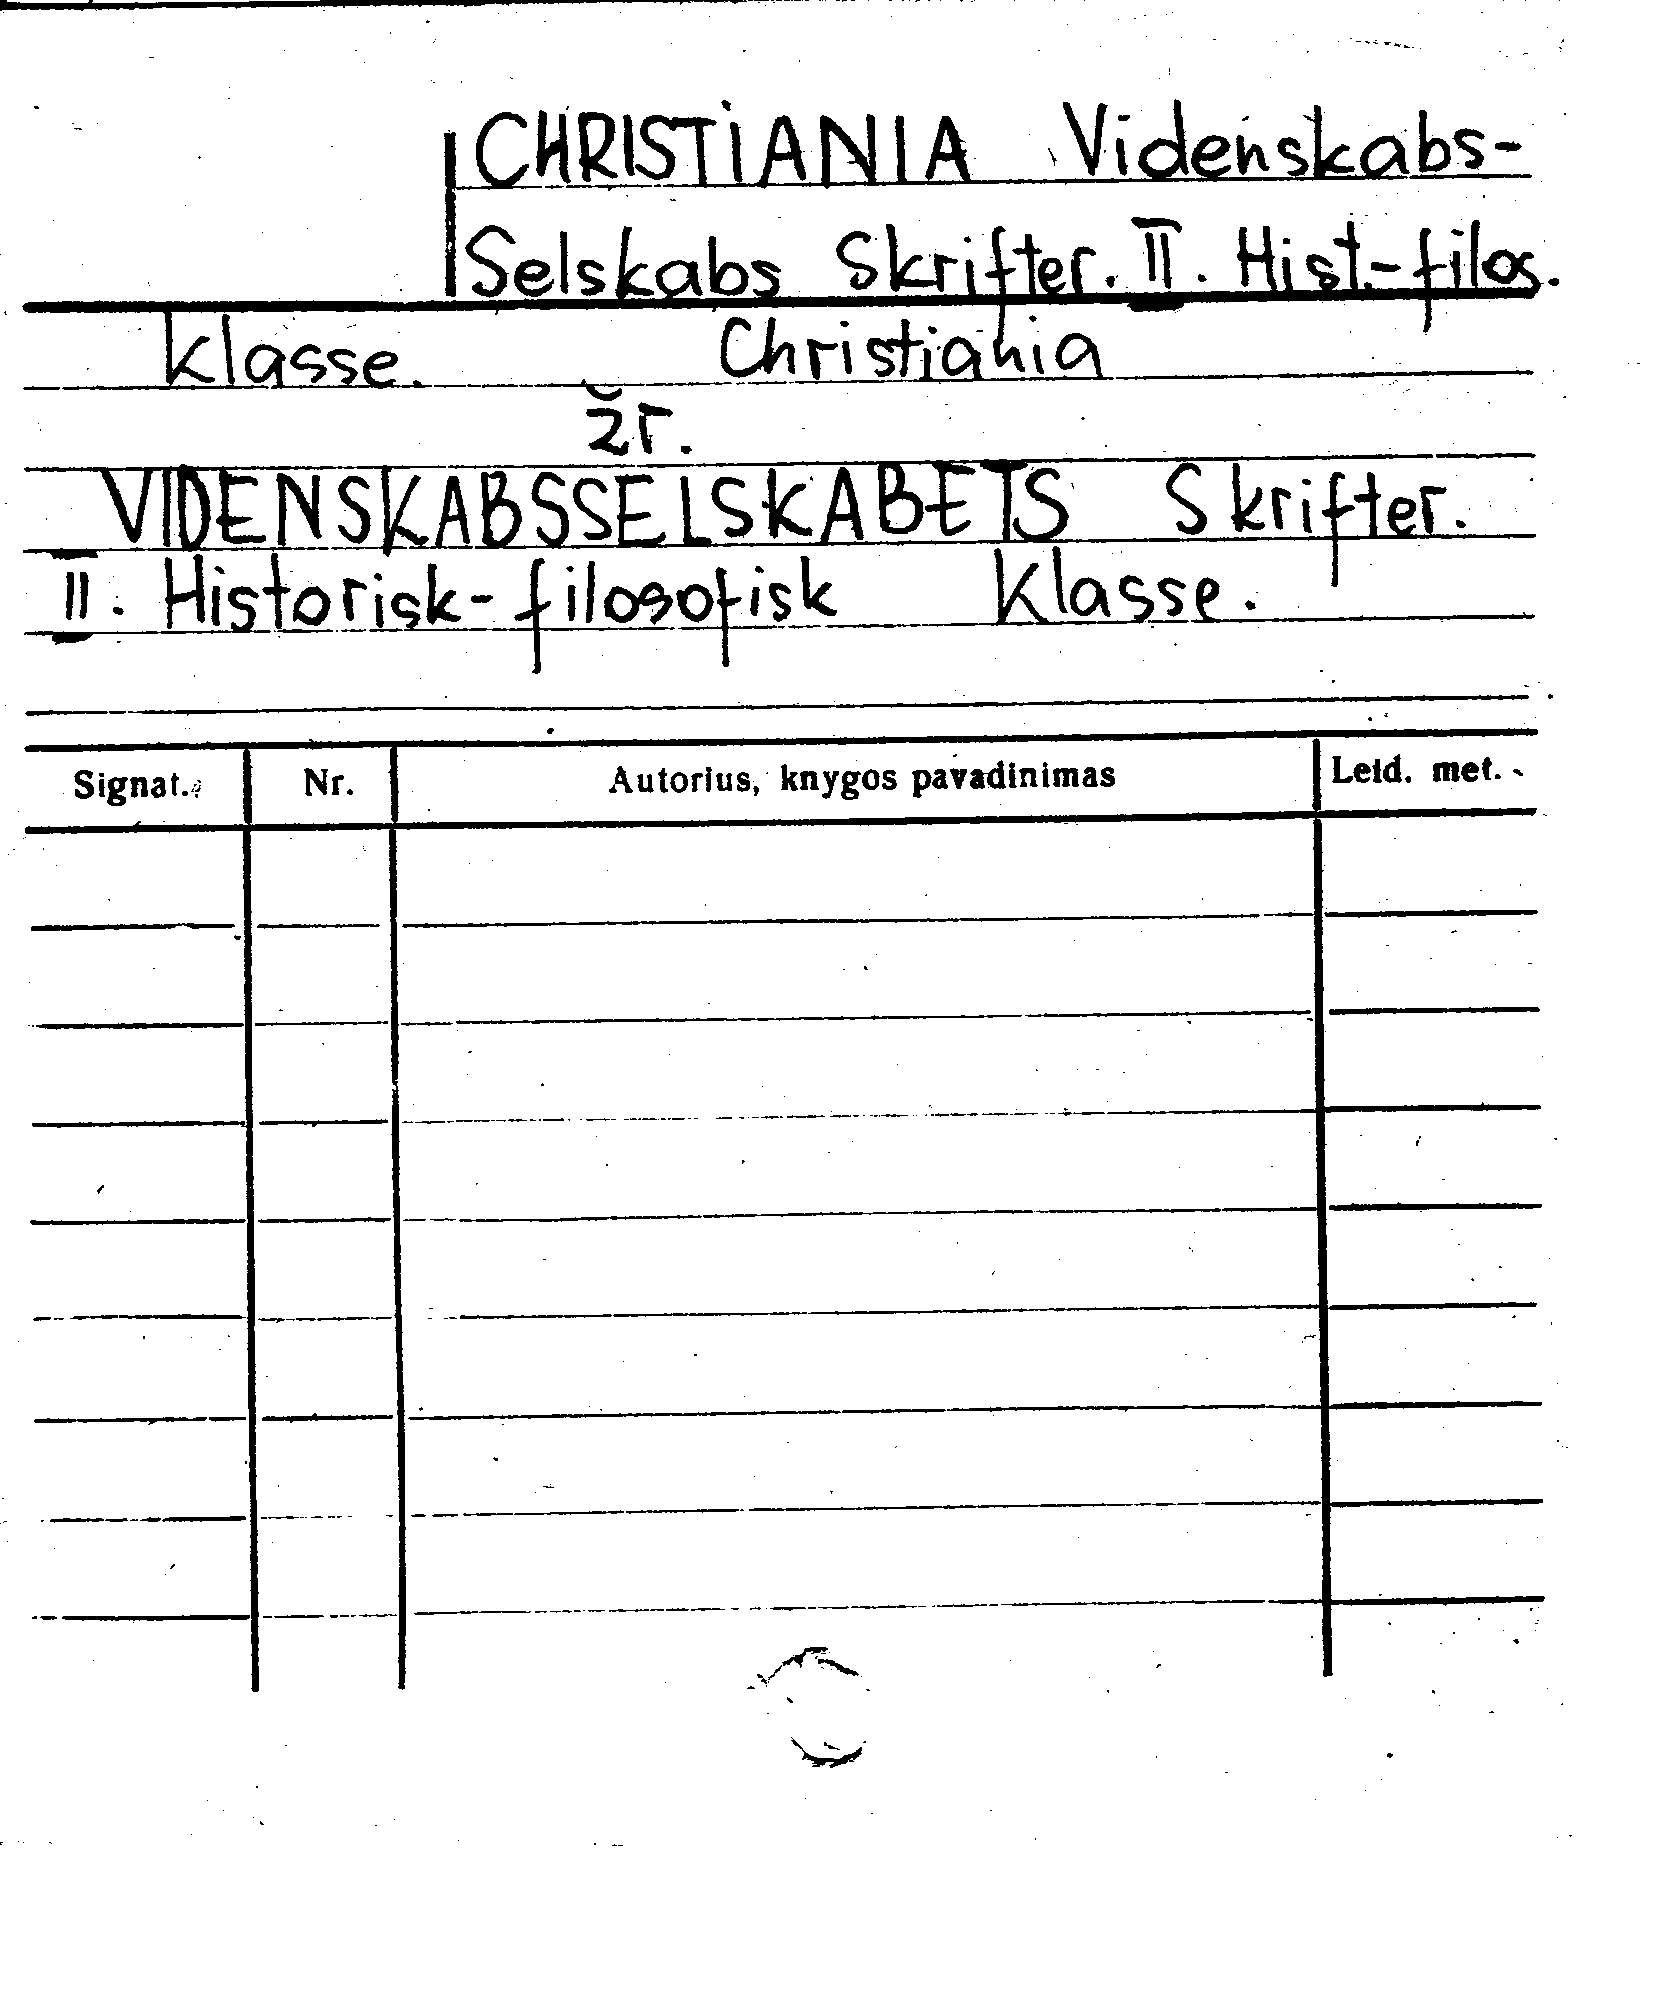 CHRISTIANIA Videnskabs-
Selskabs Skrifter. II. Hist.-filos.
klasse. Christiania
žr.
VIDENSKABSSELSKABETS Skrifter.
II. Historisk-filosofisk Klasse.
Signat. Nr. Autorius, knygos pavadinimas Leid. met.